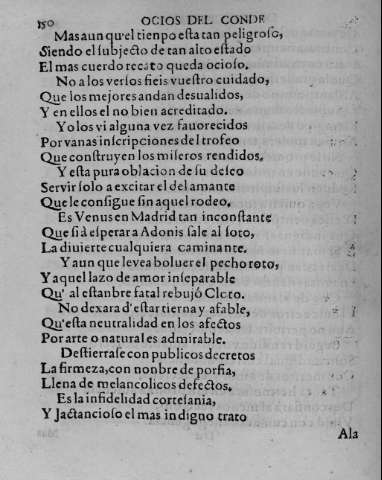 150 OCIOS DEL CONDE
Mas aun qu'el tienpo esta tan peligroso,
Siendo el subjecto de tan alto estado
El mas cuerdo recato queda ocioso.
No a los versos fieis vuestro cuidado,
Que los mejores andan desualidos,
Y en ellos el no bien acreditado.
Yo los vi alguna vez fauorecidos
Por vanas inscripciones del trofeo
Que construyen los miseros rendidos.
Y esta pura oblacion de su deseo
Servir solo a excitar el del amante
Que le consigue sin aquel rodeo.
Es Venus en Madrid tan inconstante
Que si à esperar a Adonis sale al soto,
La diuierte cualquiera caminante.
Y aun que le vea boluer el pecho roto,
Y aquel lazo de amor inseparable
Qu' al estanbre fatal rebujó Cloto.
No dexara d'estar tierna y afable,
Qu'esta neutralidad en los afectos
Por arte o natural es admirable.
Destierrase con publicos decretos
La firmeza, con nonbre de porfia,
Llena de melancolicos defectos.
Es la infidelidad cortesania,
Y Jactancioso el mas indigno trato
Ala